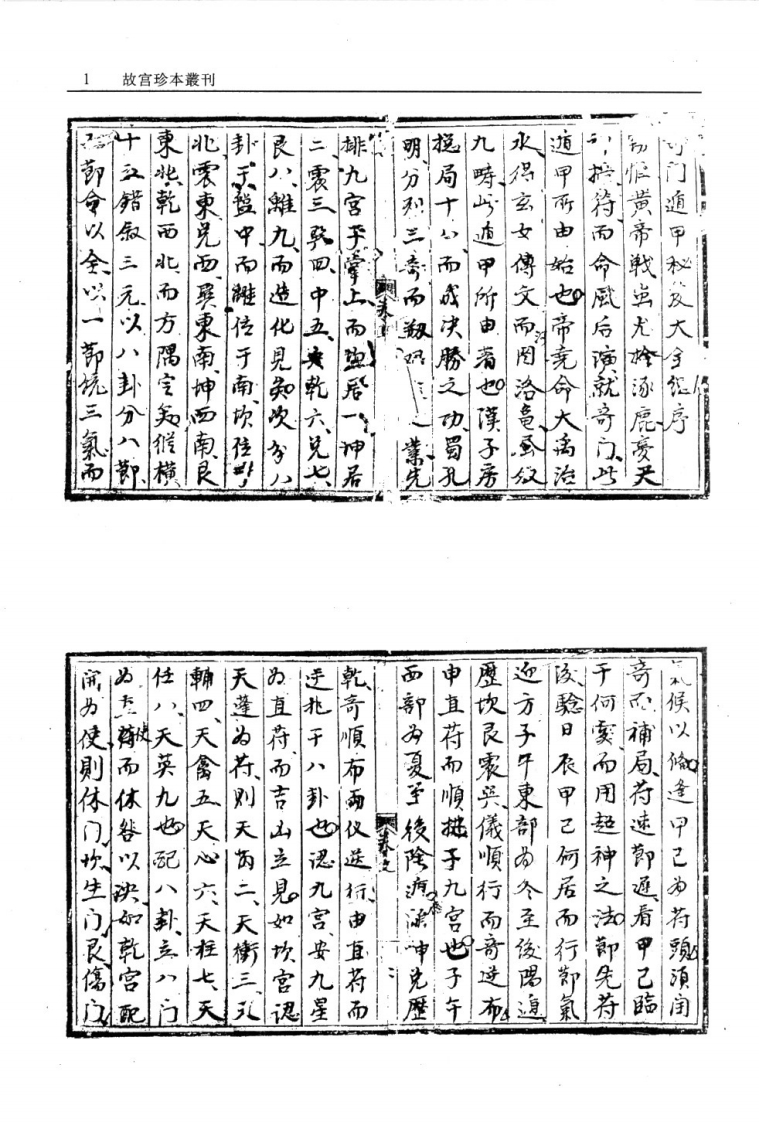 1 故宫珍本叢刊
奇门遁甲秘笈大全總序
昔黄帝戰蚩尤於涿鹿憂天
而命風后演就奇门此
遁甲所由始也帝堯命大禹治
水得玄女傳文而因洛龟画紋
九疇此遁甲所由着也漢子房
局十八而成决勝之功蜀孔
明分列三奇而 業先
排九宫于掌上而 居一坤居
二震三巽四中五 乾六兑七
艮八離九而造化見矣次分八
卦于盤中而離位于南坎位
北震東兑西巽東南坤西南艮
東北乾西北而方隅定矣縱横
十五錯叙三元以八卦分八節
節命以全以一節统三氣而
氣候以 逢甲己为符頭須闰
奇而補局符速節遲看甲己臨
于何宫而用超神之法節先符
後驗日辰甲己何居而行節氣
近方子午東部为冬至後陽遁
歷坎艮震巽儀順行而奇逆布
申直符而順 于九宫也子午
西部为夏至後陰遁 坤兑歷
乾奇順布而仪逆行由直符而
逆 于八卦也認九宫安九星
为直符而吉凶立見如坎宫認
天蓬为符則天芮二天衝三天
輔四天禽五天心六天柱七天
任八天英九也配八卦立八门
为直使而休咎以决如乾宫配
開为使則休门坎生门艮傷门